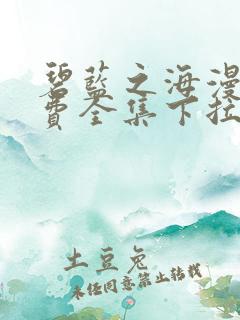 碧蓝之海漫
费全集下拉
土豆兔
未经同意禁止转载